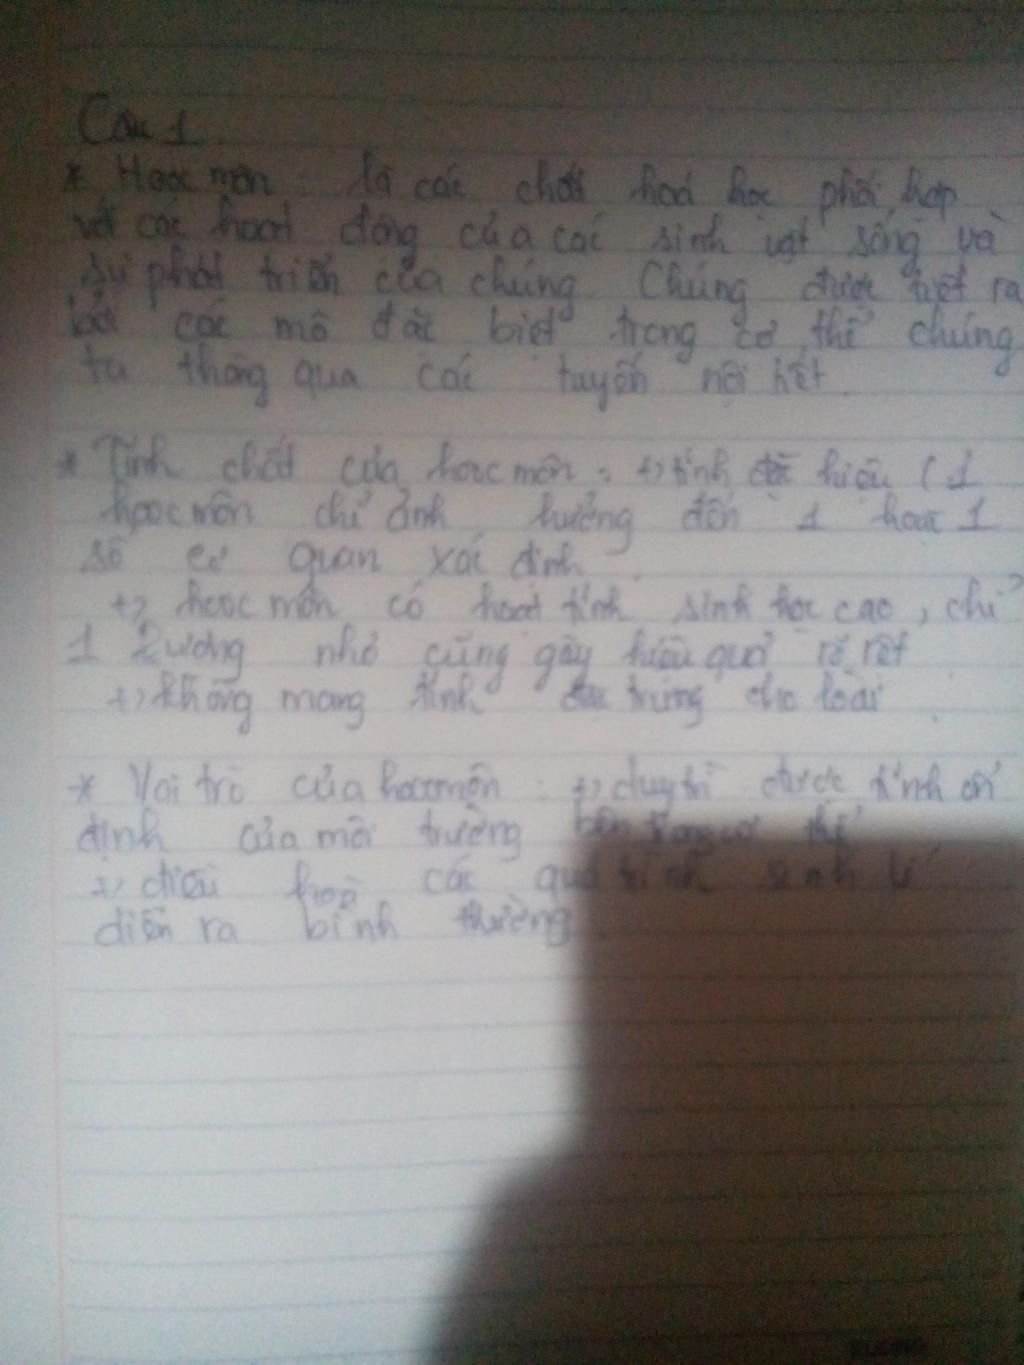 Câu 1
* Hoocmôn : là các chất hoá học phối hợp
với các hoạt động của các sinh vật sống và
sự phát triển của chúng. Chúng được tiết ra
bởi các mô đặc biệt trong cơ thể chúng
ta thông qua các tuyến nội tiết.
* Tính chất của hoocmôn : +) tính đặc hiệu ( 1
hoocmôn chỉ ảnh hưởng đến 1 hoặc 1
số cơ quan xác định
+) hoocmôn có hoạt tính sinh học cao, chỉ
1 lượng nhỏ cũng gây hiệu quả rõ rệt
+) không mang tính đặc trưng cho loài
* Vai trò của hoocmôn : +) duy trì được tính ổn
định của môi trường bên trong cơ thể
+) điều hoà các quá trình sinh lí
diễn ra bình thường.